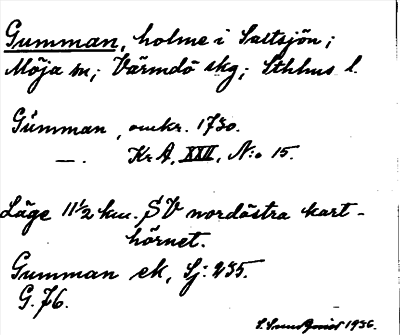 Gumman, holme i Saltsjön;
Möja sn; Värmdö skg; Sthlms l.
Gumman, omkr. 1730.
—. Kr A, XXII, N:o 15.
Läge 11½ km. SV nordöstra kart-
hörnet.
Gumman ek, Sj: 235.
G. 76.
1936.